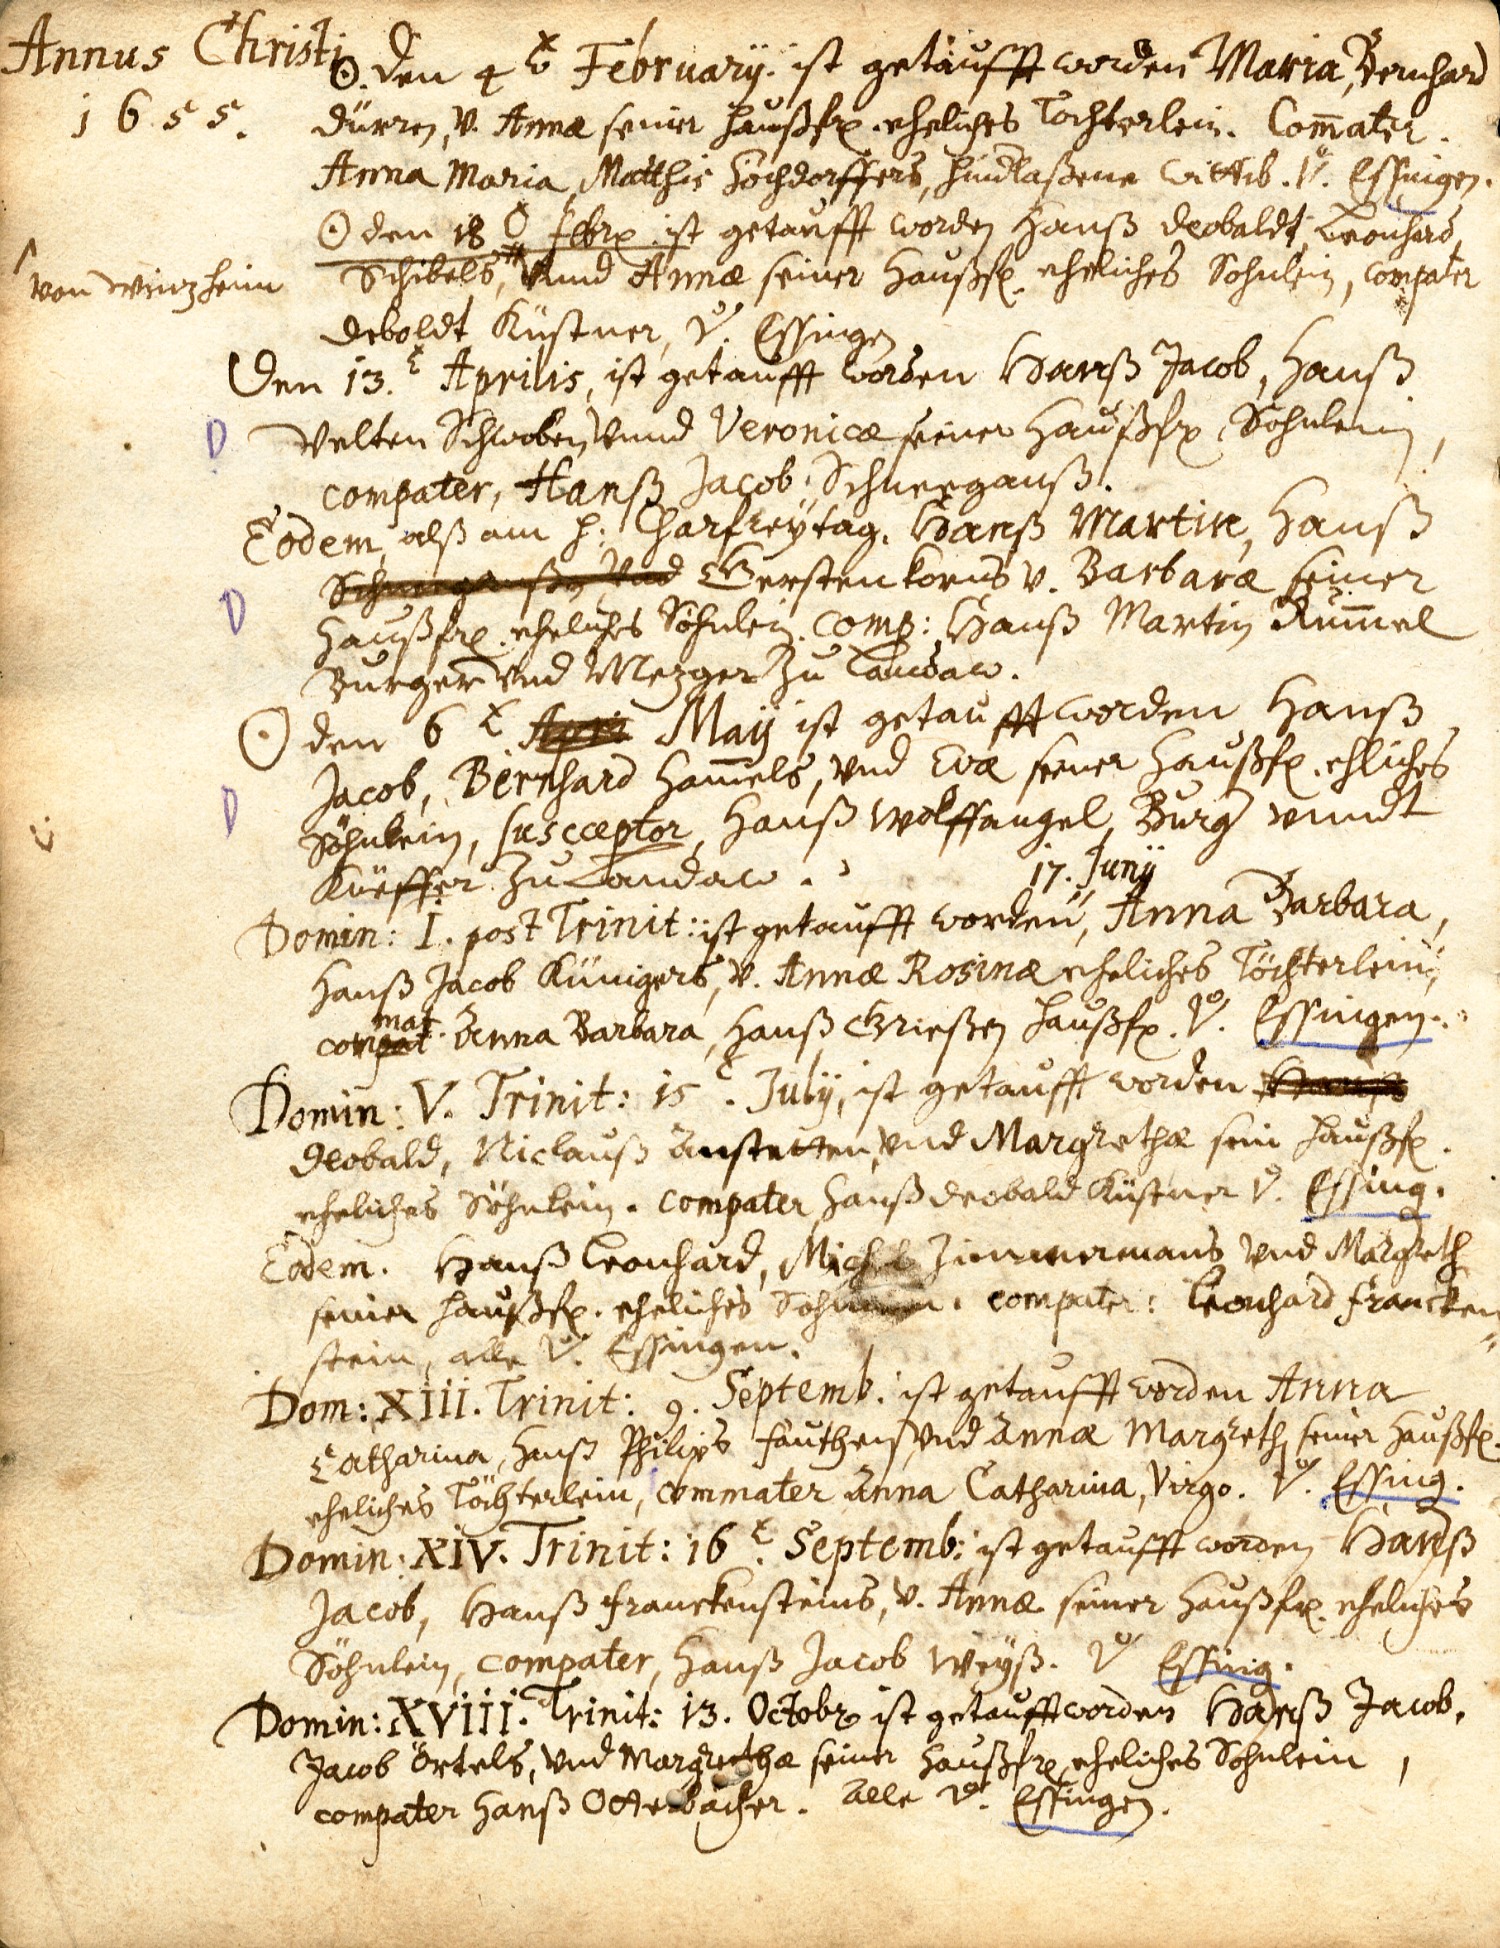 Annus Christi
1655.
☉. den 4 t February. ist getaufft worden Maria, Bernhard
dürren, v. Annæ seiner haußfr. eheliches Tochterlein. Com̄ater.
Anna Maria, Matthis Höchdorffers, hindlaßene Wittib. V. Essingen.
☉ den 18 Febr. ist getaufft worden Hanß deobaldt, Leonhard
von Winzheim
Schibels, vnnd Annæ seiner Haußfr. eheliches Sohnlein, compater
deboldt Küstner, V. Essingen
Den 13. t Aprilis, ist getaufft worden Hanß Jacob, Hanß
Velten Schwoben, vnnd Veronicæ seiner Haußfr. Sohnlein,
compater, Hanß Jacob Schneeganß.
Eodem, alß am h. Charfreÿtag. Hanß Martin, Hanß
Gerstenkorns v. Barbaræ seiner
Haußfr. eheliches Söhnlein. comp: Hanß Martin Rum̄el
Burger vnd Mezger zu Landaw.
☉ den 6 t Maÿ ist getaufft worden Hanß
Jacob, Bernhard Ham̄els, vnd Evæ seiner Haußfr. ehliches
Söhnlein, susceptor, Hanß Wolffangel, Burg vnndt
Küeffer zu Landaw.
17. Junÿ
Domin: I. post Trinit: ist getaufft worden, Anna Barbara,
Hanß Jacob Künigers, v. Annæ Rosinæ eheliches Töchterlein,
commat. Anna Barbara, Hanß Grießen Haußfr. V. Essingen.
Domin: V. Trinit: 15 t. Julÿ, ist getaufft worden
deobald, Niclauß Anstetten, vnd Margrethæ sein haußfr.
eheliches Söhnlein. compater Hanß deobald Küstner V. Essing.
Eodem. Hanß Leonhard, Michel Zimmermans vnd Margreth
seiner haußfr. eheliches Sohnlein. compater: Leonhard Francken
stein, alle V. Essingen.
Dom: XIII. Trinit: 9. Septemb: ist getaufft worden Anna
Catharina, Hanß Philips Fauthen, vnd Annæ Margreth, seiner Haußfr.
eheliches Töchterlein, commater Anna Catharina, Virgo. V. Essing.
Domin: XIV. Trinit: 16 t. Septemb: ist getaufft worden Hanß
Jacob, Hanß Franckensteins, v. Annæ seiner Haußfr. eheliches
Söhnlein, compater, Hanß Jacob Weÿß. V. Essing.
Domin: XVIII. Trinit: 13. Octobr. ist getaufft worden Hanß Jacob,
Jacob Örtels, vnd Margrethæ seiner Haußfr. eheliches Sohnlein,
compater Hanß Otterbacher. Alle V. Essingen.